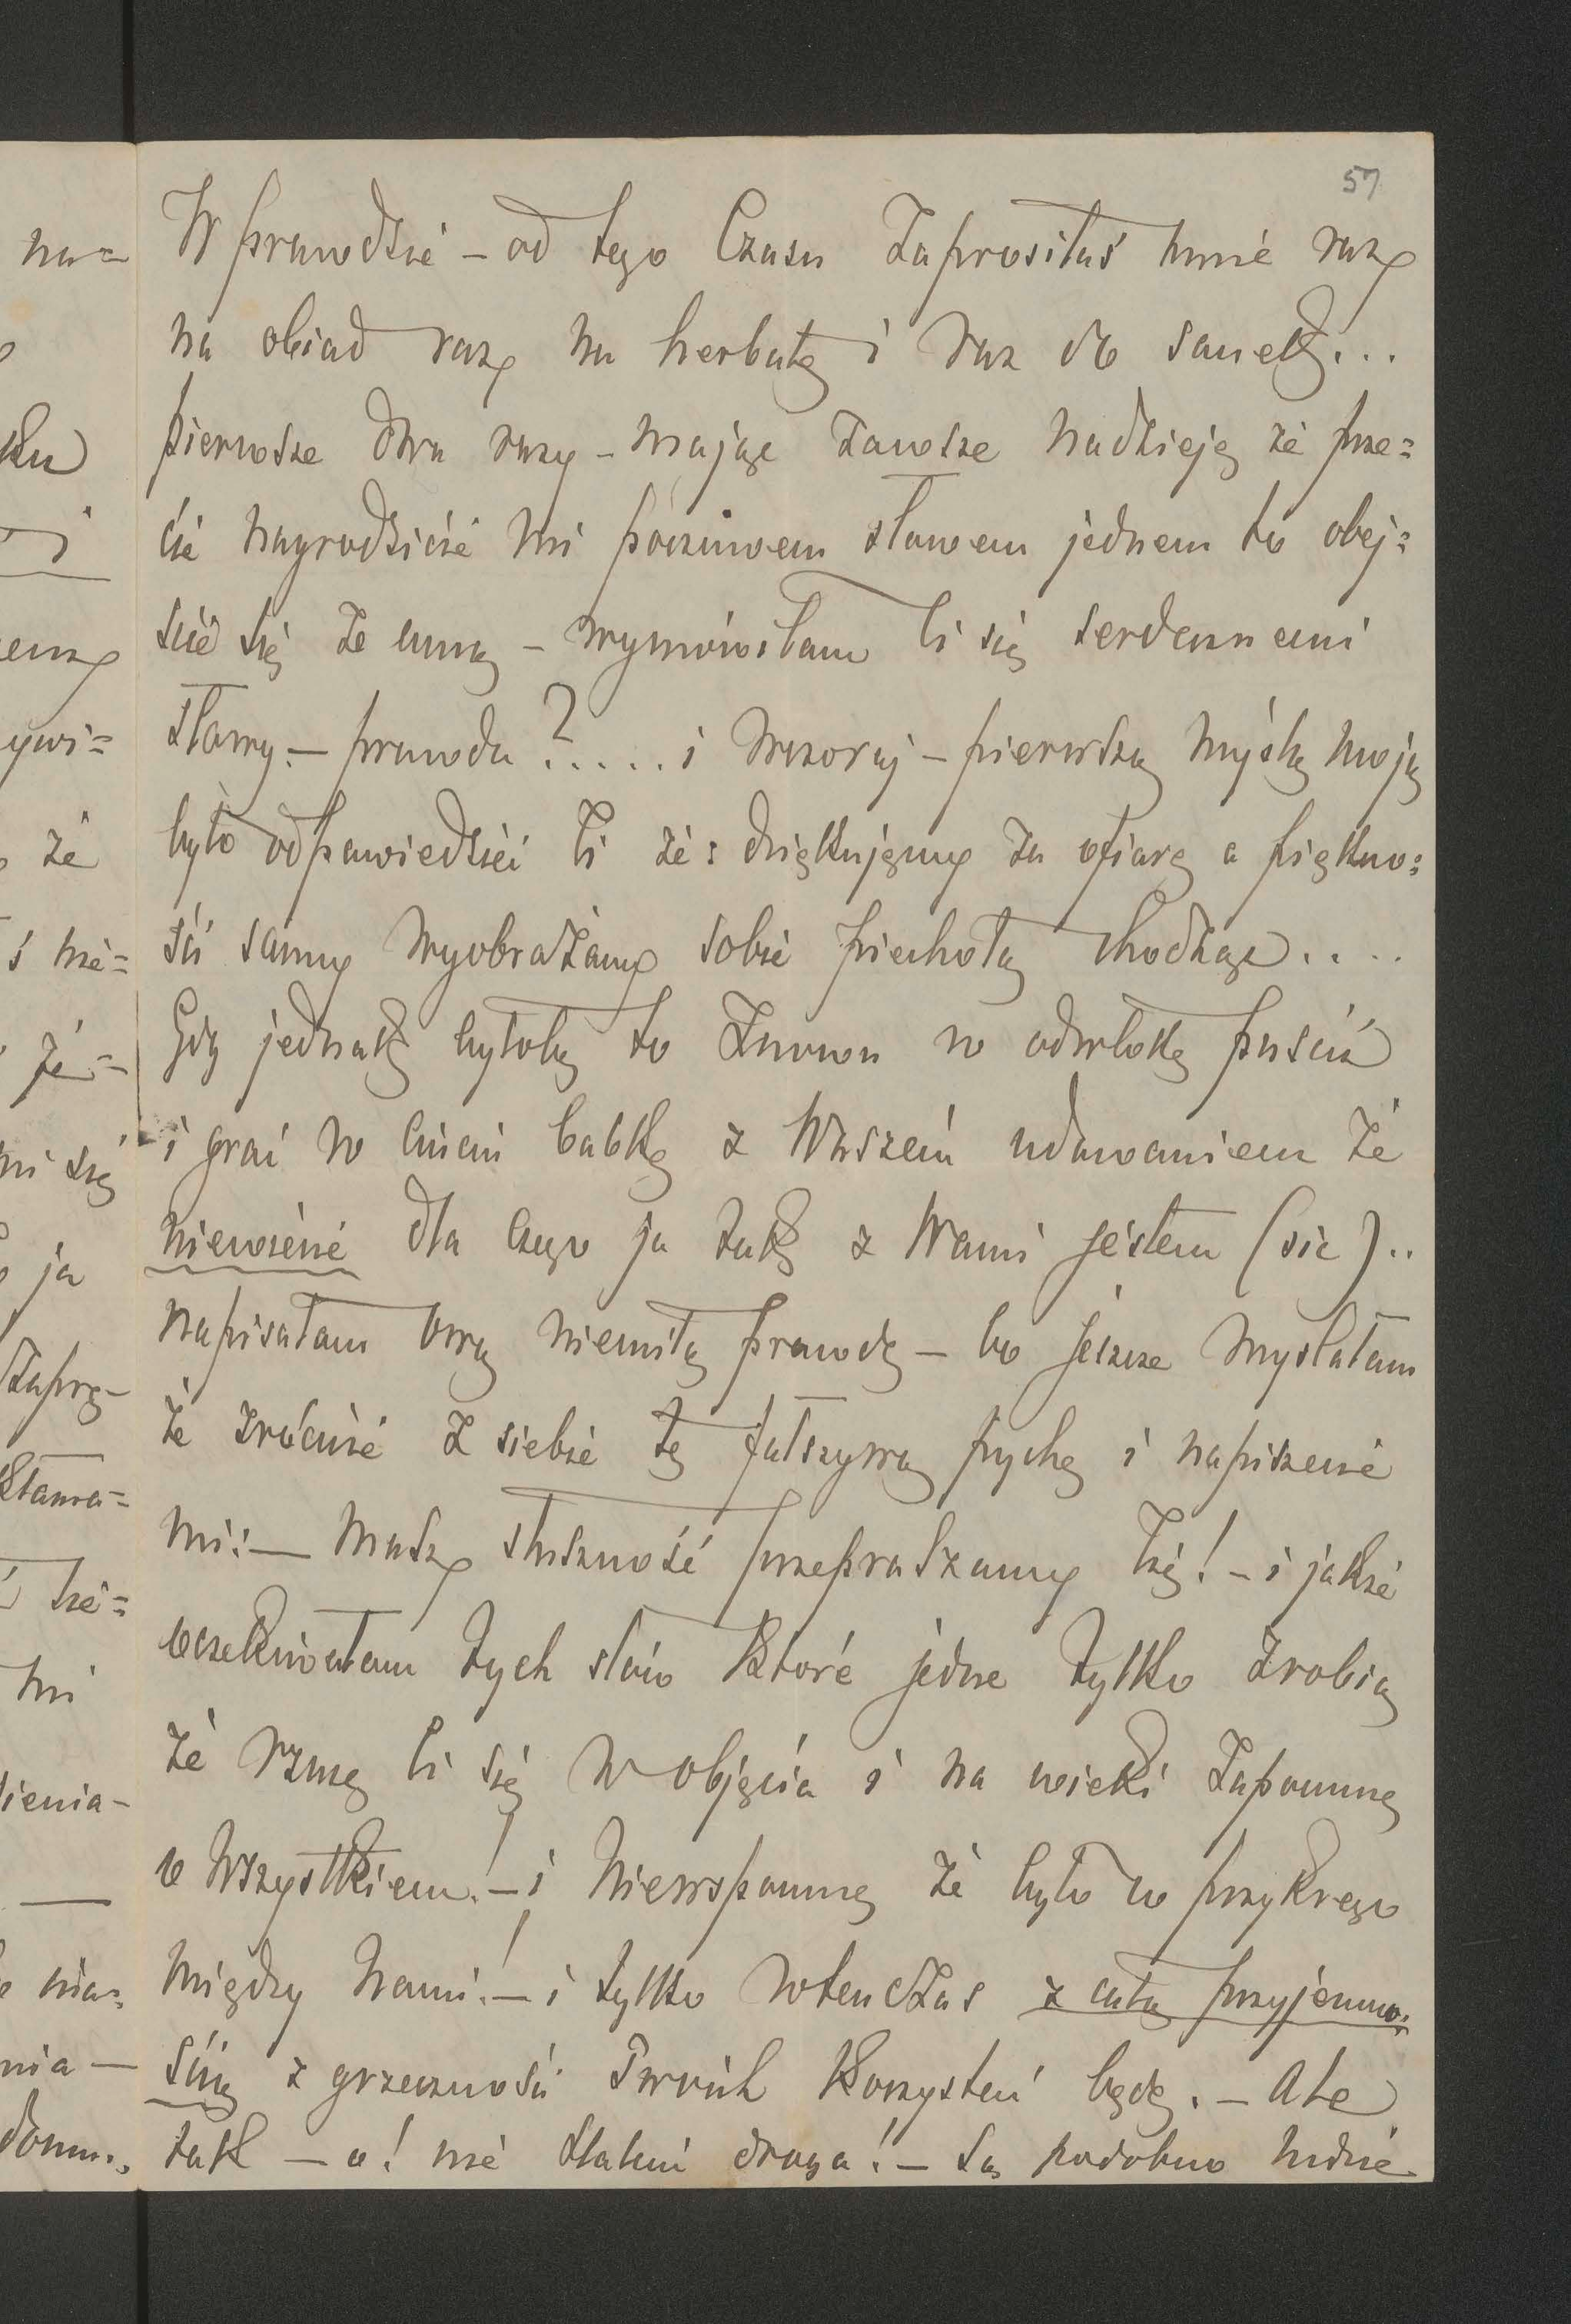 57
W prawdzie – od tego Czasu Zaprosiłaś mnie raz
na obiad raz na herbatę i raz do sanek...
pierwsze dwa razy – mając zawsze nadzieję że prze=
cie nagrodzicie mi poczciwem słowem jednem to obej=
ście się ze mną – wymówiłam Ci się serdecznemi
słowy. – prawda?..... i wczoraj – pierwszą myślą moją
było odpowiedzieć Ci że: dziękujemy za ofiarę a piękno=
ści sanny wyobrażamy sobie piechotą chodząc....
Gdy jednak byłoby to Znowu w odwłokę puścić
i grać w ciuciu babkę z Waszem udawaniem że
niewiecie dla czego ja tak z Wami jestem (sic)..
napisałam ową niemiłą prawdę – bo jeszcze myślałam
że zrócicie z siebie tę fałszywą pychę i napiszecie
mi: – masz słuszność przepraszamy Cię! – i jakże
oczekiwałam tych słów które jedne tylko zrobią
że rzucę Ci się w objęcia i na wieki Zapomnę
o wszystkiem! – i niewspomnę że było co przykrego
między nami! – i tylko wtenczas z całą przyjemno=
ścią z grzeczności Twoich korzystać będę. – Ale
tak – o! nie droga! – są podobno
na=
ku
i
ywi=
że
ś nie=
że –
mi się
ja
Zaprę–
kłama=
nie=
mi
ienia–
nia –